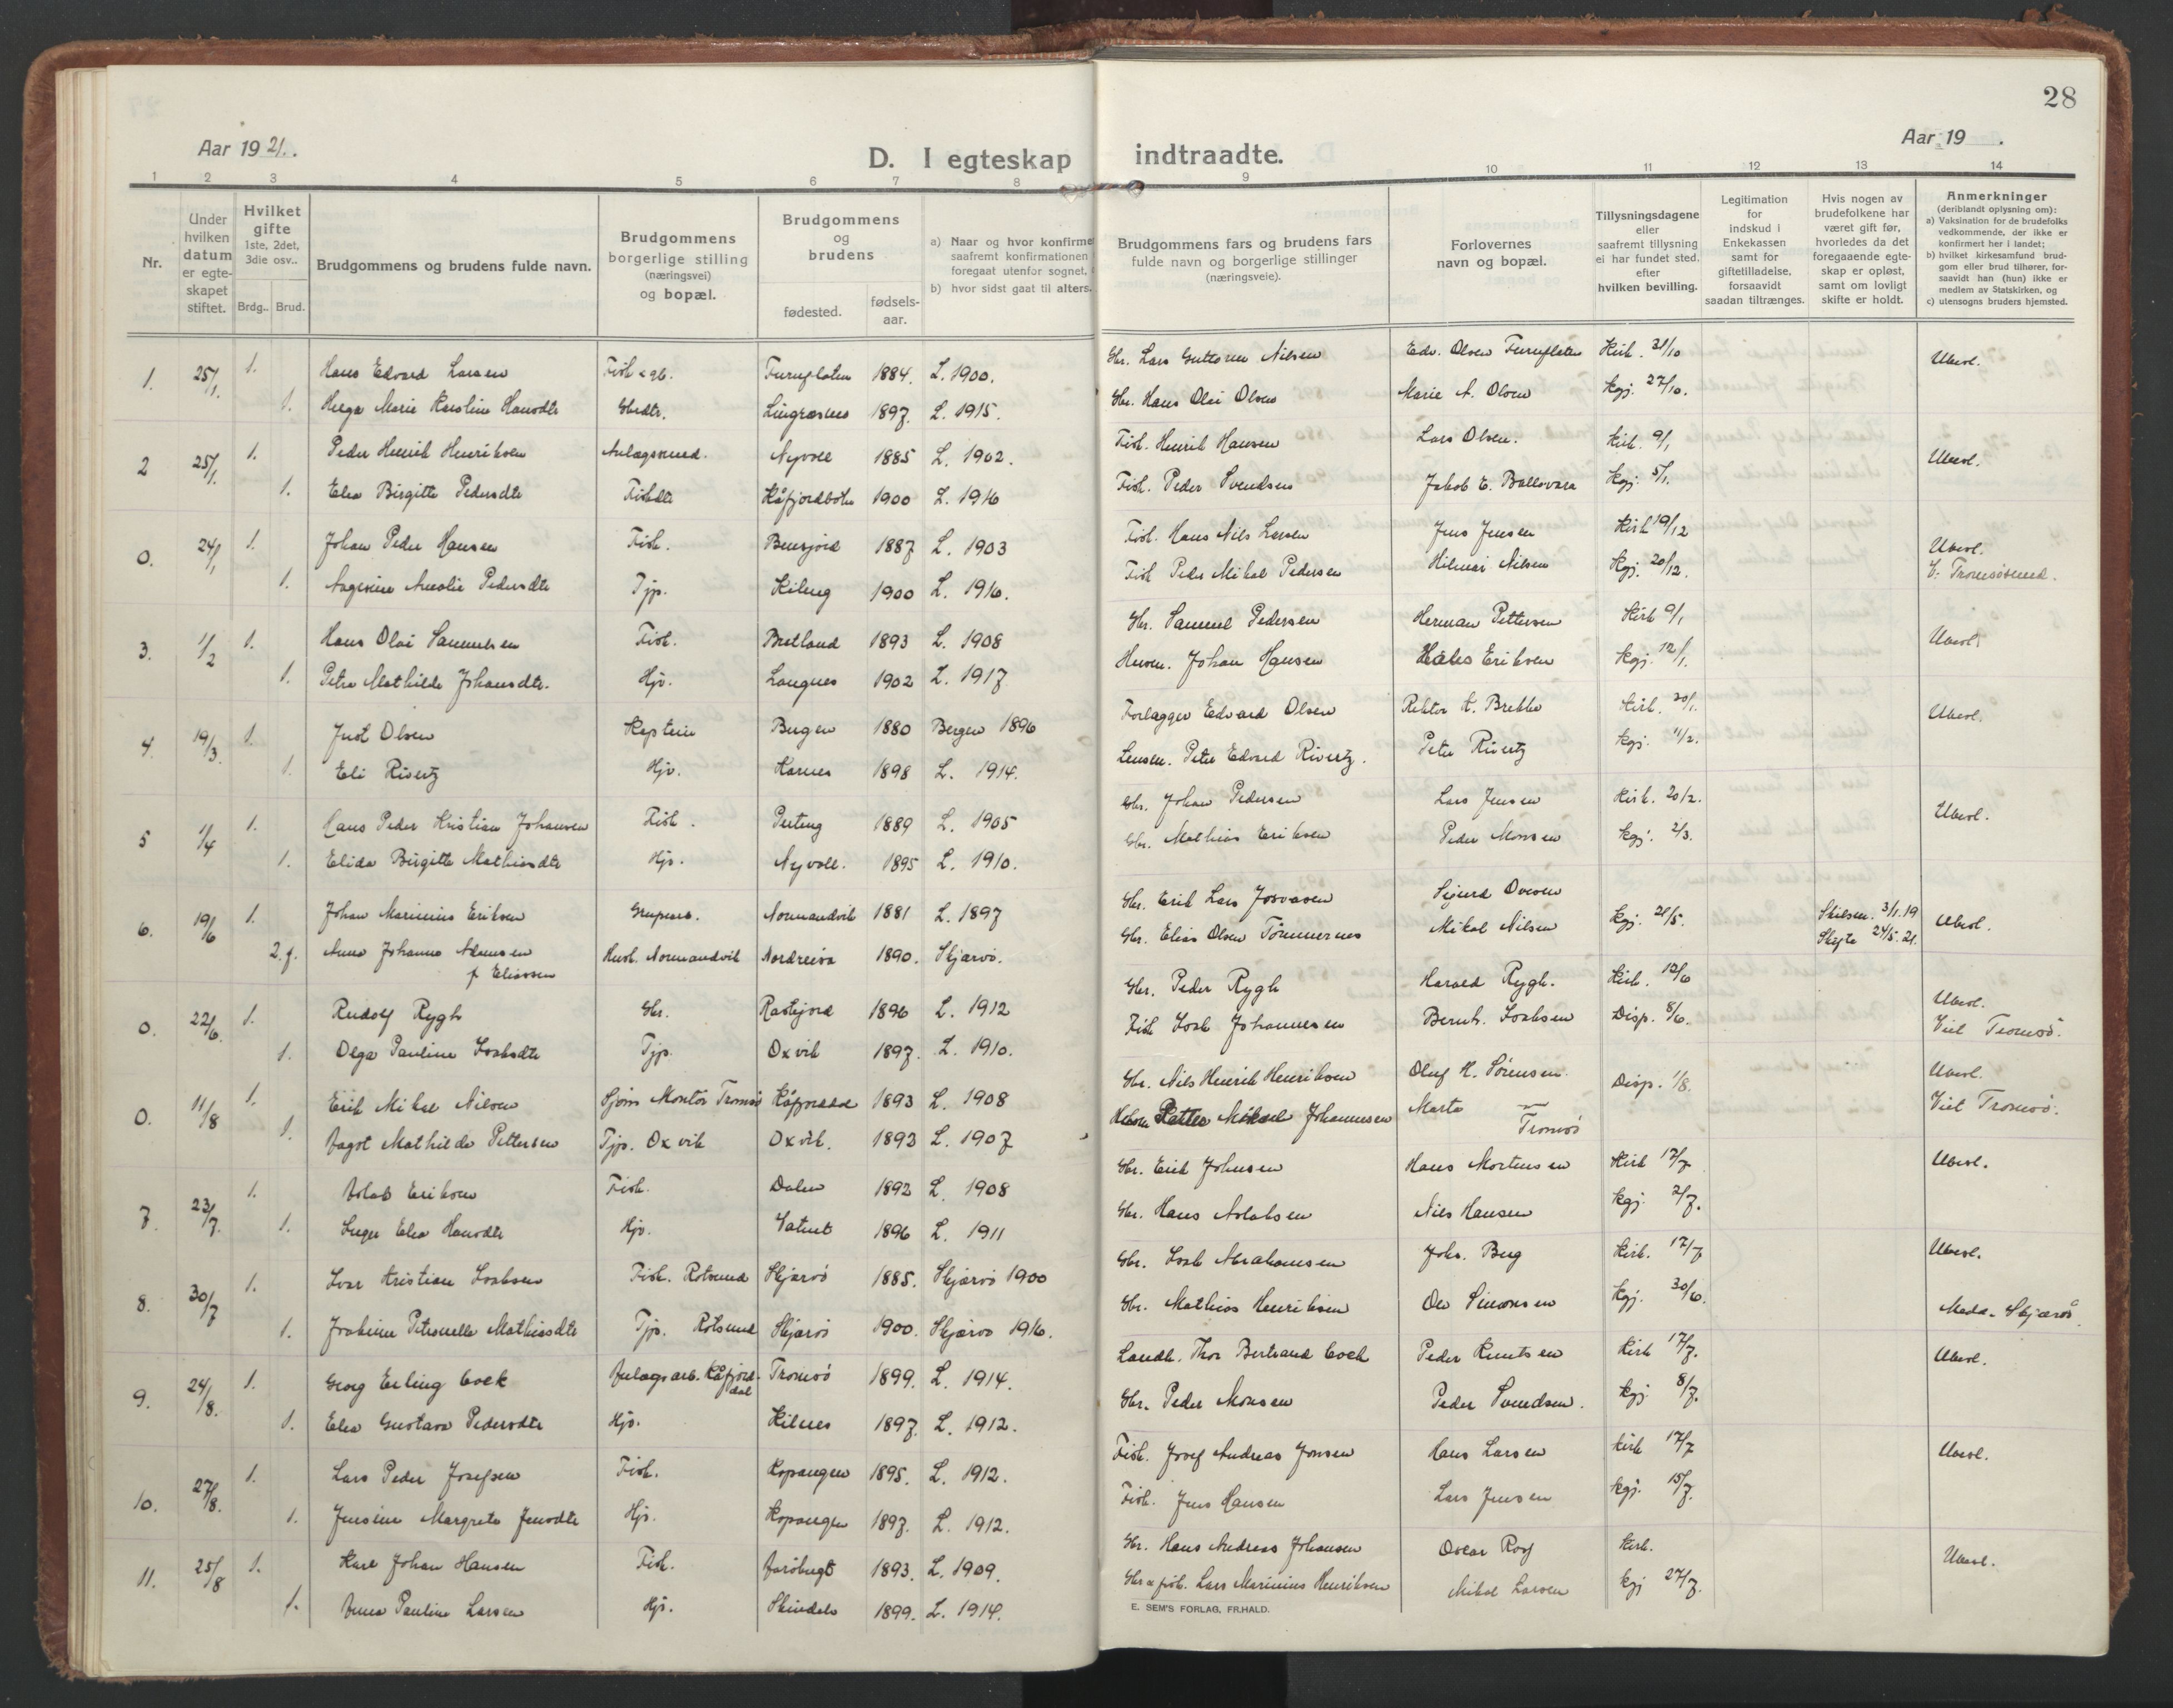 28
Aar 1921.
Aar 19 .
D. I egteskap indtraadte.
1 2 3 4 5 6 7 8 9 10 11 12 13 14
Nr.
Under hvilken datum er egte-skapet stiftet.
Hvilket gifte 1ste, 2det, 3die osv..
Brdg.. Brud.
Brudgommens og brudens fulde navn.
Brudgommens borgerlige stilling (næringsvei) og bopæl.
Brudgommens og brudens
fødested.
fødsels-aar.
a) Naar og hvor konfirme
saafremt konfirmationen
foregaat utenfor sognet,
b) hvor sidst gaat til alters.
Brudgommens fars og brudens fars
fulde navn og borgerlige stillinger
(næringsveie).
Forlovernes
navn og bopæl.
Tillysningsdagene
eller
saafremt tillysning
ei har fundet sted.
efter
hvilken bevilling.
Legitimation
for
indskud i
Enkekassen
samt for
giftetilladelse,
forsaavidt
saadan tiltrænges.
Hvis nogen av
brudefolkene har
været gift før,
hvorledes da det
foregaaende egte-
skap er opløst,
samt om lovligt
skifte er holdt.
Anmerkninger
(deriblandt oplysning om):
a) Vaksination for de brudefolks
vedkommende, der ikke er
konfirmert her i landet;
b) hvilket kirkesamfund brud-
gom eller brud tilhører, for-
saavidt han (hun) ikke er
medlem av Statskirken, og
c) utensogns bruders hjemsted.
1. 25/1. 1. Hans Edvard Larsen Fisk & gb. Furuflaten 1884. L. 1900. Gbr. Lars Guttorm Nilsen Edv. Olsen Furuflaten Kirk. 31/10 Ubesl.
1. Helga Marie Karoline Hansdtr Gbrdtr. Lyngsnes 1897. L. 1915. Gbr. Hans Olai Olsen Marie A. Olsen kgj. 27/10.
2 25/1. 1. Peder Henrik Henriksen Anlagssmed. Nyvoll 1885 L. 1902. Fisk. Henrik Hansen Lars Olsen. Kirk. 9/1 Ubesl.
1. Elea Birgitte Pedersdtr Fiskdtr Kåfjordbotn 1900 L. 1916 Fisk. Peder Svendsen Jakob E. Ballovara Kgj. 5/1.
0. 24/1 1. Johan Peder Hansen Fisk. Bensjord 1887 L. 1903 Fisk. Hans Nils Larsen Jens Jensen Kirk 19/12 Ubesl.
1. Aagesine Amalie Pedersdtr Tjp. 1900 L. 1916. Fisk Peder Mikal Pedersen Hilmar Nilsen Kgj. 20/12. V: Tromsøsund.
3. 1/2 1. Hans Olai Samuelsen Fisk. Bretland 1893 L. 1908 Gbr. Samuel Pedersen Herman Pettersen Kirk 9/1 Ubesl.
1. Petra Mathilde Johansdtr. Hjv. Langnes 1902 L. 1917 Husm. Johan Hansen Hales Eriksen kgj. 12/1.
4 19/3. 1. Just Olsen Kaptein Bergen 1880 Bergen 1896 Forlægger Edvard Olsen Rektor K. Brekke Kirk. 30/1. Ubesl.
1. Eli Rivertz Hjv. Karnes 1898 L. 1914. Lensm. Peter Edvard Rivertz. Peter Rivertz kgj. 11/2.
5 1/4 1. Hans Peder Kristian Johansen Fisk. 1889 L. 1905 Gbr. Johan Pedersen Lars Jensen Kirk. 20/2. Ubesl.
1. Elida Birgitte Mathisdtr Hjv. Nyvoll. 1895 L. 1910. Gbr. Mathias Eriksen Peder Monsen kgj. 2/3.
6. 19/6 1. Johan Marinius Eriksen Grubearb. Normandvik 1881 L. 1897 Gbr. Erik Lars Josvasen Sigurd Ovesen kgj. 21/5. Skilsm. 3/1.19 Ubesl.
2.g. Anna Johanna Adamsen Hush. Normandvik Nordreisa 1890. Skjervø. Gbr. Elias Olsen Tømmernes Mikal Nilsen Skifte 24/5.21.
f Eliassen
0. 22/6. 1. Rudolf Rygh Gbr. Rastejord 1896 L. 1912 Gbr. Peder Rygh Harald Rygh. Kirk. 12/6 Ubesl.
1. Olga Pauline Isaksdtr Tjp. Oxvik 1897. L. 1910. Fisk Isak Johannesen Bernh. Isaksen Disp. 8/6. Viet Tromsø.
0. 11/8 1. Erik Mikal Nilsen Montør Tromsø Kåfjorddal 1893 L. 1908 Gbr. Nils Henrik Henriksen Oluf K. Sørensen Disp. 1/8. Ubesl.
1. Aagot Mathilde Pettersen Tjp. Oxvik Oxvik. 1893 L. 1907 Petter Mikael Johannesen Marta — Viet Tromsø.
Tromsø
7. 23/7. 1. Aslak Eriksen Fisk. Dalen 1892 L. 1908 Gbr. Erik Johnsen Hans Mortensen Kirk 17/7 Ubesl.
1. Inger Elea Hansdtr Hjv. Vatnet 1896 L. 1911 Gbr. Hans Aslaksen Nils Hansen kgj. 2/7.
8. 30/7 1. Ivar Kristian Isaksen Fisk. Rotsund Skjervø 1885. Skjervø 1900 Gbr. Isak Abrahamsen Johs. Berg Kirk. 17/7 Ubesl.
1. Joakine Petronelle Mathisdtr Tjp. Rotsund Skjervø 1900. Skjervø 1916. Gbr. Mathias Henriksen Ole Simonsen kgj. 30/6. Medd. Skjervø.
9. 24/8. 1. Georg Erling Cock Anlagsarb. Kåfjorddal Tromsø 1899. L. 1914. Landh. Thor Bertrand Cock Peder Knutsen Kirk 17/7. Ubesl.
1. Elea Gustava Pedersdtr Hjv. Kilnes 1897. L. 1912. Gbr. Peder Monsen Peder Svendsen. kgj. 8/7.
10. 27/8. 1. Lars Peder Josefsen Fisk. Kopangen 1895. L. 1912. Fisk. Josef Andreas Jonsen Hans Larsen kirk 17/7 Ubesl.
1. Jensine Margrete Jensdtr Hjv. Kopangen 1897. L. 1912. Fisk. Jens Hansen Lars Jensen kgj. 15/7.
11. 25/8 1. Karl Johan Hansen Fisk. Aarøbugt 1893. L. 1909. Gbr. Hans Andreas Johansen Oscar Roof Kirk. Ubesl.
1. Anna Pauline Larsen Hjv. Skindalo 1899. L. 1914. Gbr & fisk. Lars Marinius Henriksen Mikal Larsen kgj 27/7.
E. SEM'S FORLAG, FR.HALD.